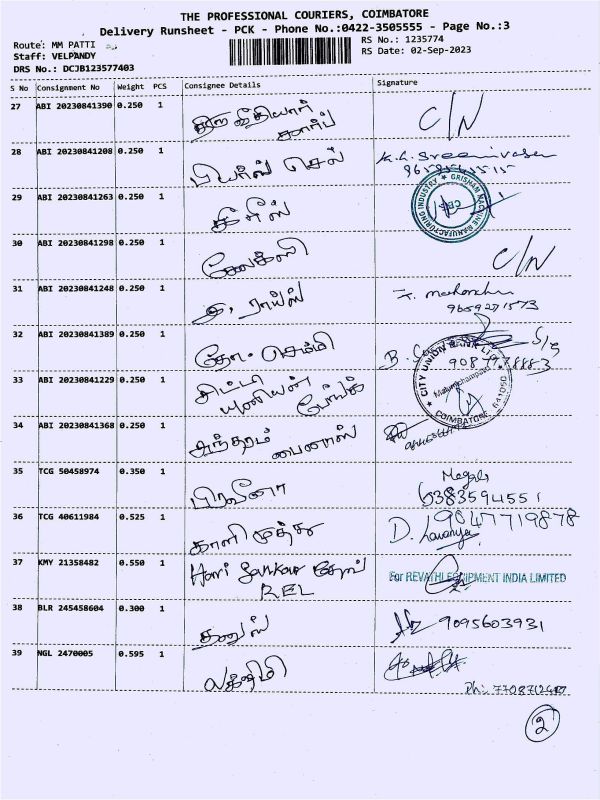 THE PROFESSIONAL COURIERS, COIMBATORE
Delivery Runsheet - PCK - Phone No.:0422-3505555 - Page No.:3
Route: MM PATTI
RS No.: 1235774
Staff: VELPANDY
RS Date: 02-Sep-2023
DRS No.: DCJB123577403
S No Consignment No Weight PCS Consignee Details Signature
27 ABI 20230841390 0.250 1 C/N
28 ABI 20230841208 0.250 1 பியர்ஸ் செல் K.G. Sreenivasan
9659543515
29 ABI 20230841263 0.250 1 கிரீஸ்
GRISHAM MACHINE MANUFACTURING INDUSTRY
CBE
30 ABI 20230841298 0.250 1 C/N
31 ABI 20230841248 0.250 1
9659271573
32 ABI 20230841389 0.250 1
33 ABI 20230841229 0.250 1 சிட்டி
யூனியன் பேங்க்
CITY UNION BANK LTD.
Malumichampatti
COIMBATORE 641050
34 ABI 20230841368 0.250 1 சுந்தரம்
பைனான்ஸ்
35 TCG 50458974 0.350 1 பிரவீனா Megala
6383594551
36 TCG 40611984 0.525 1 காளிமுத்து 9047719878
D. Lavanya
37 KMY 21358482 0.550 1 Hari Sankar
REL
For REVATHI EQUIPMENT INDIA LIMITED
38 BLR 245458604 0.300 1 தனுஸ் 9095603931
39 NGL 2470005 0.595 1 லக்ஷ்மி
Ph:
2